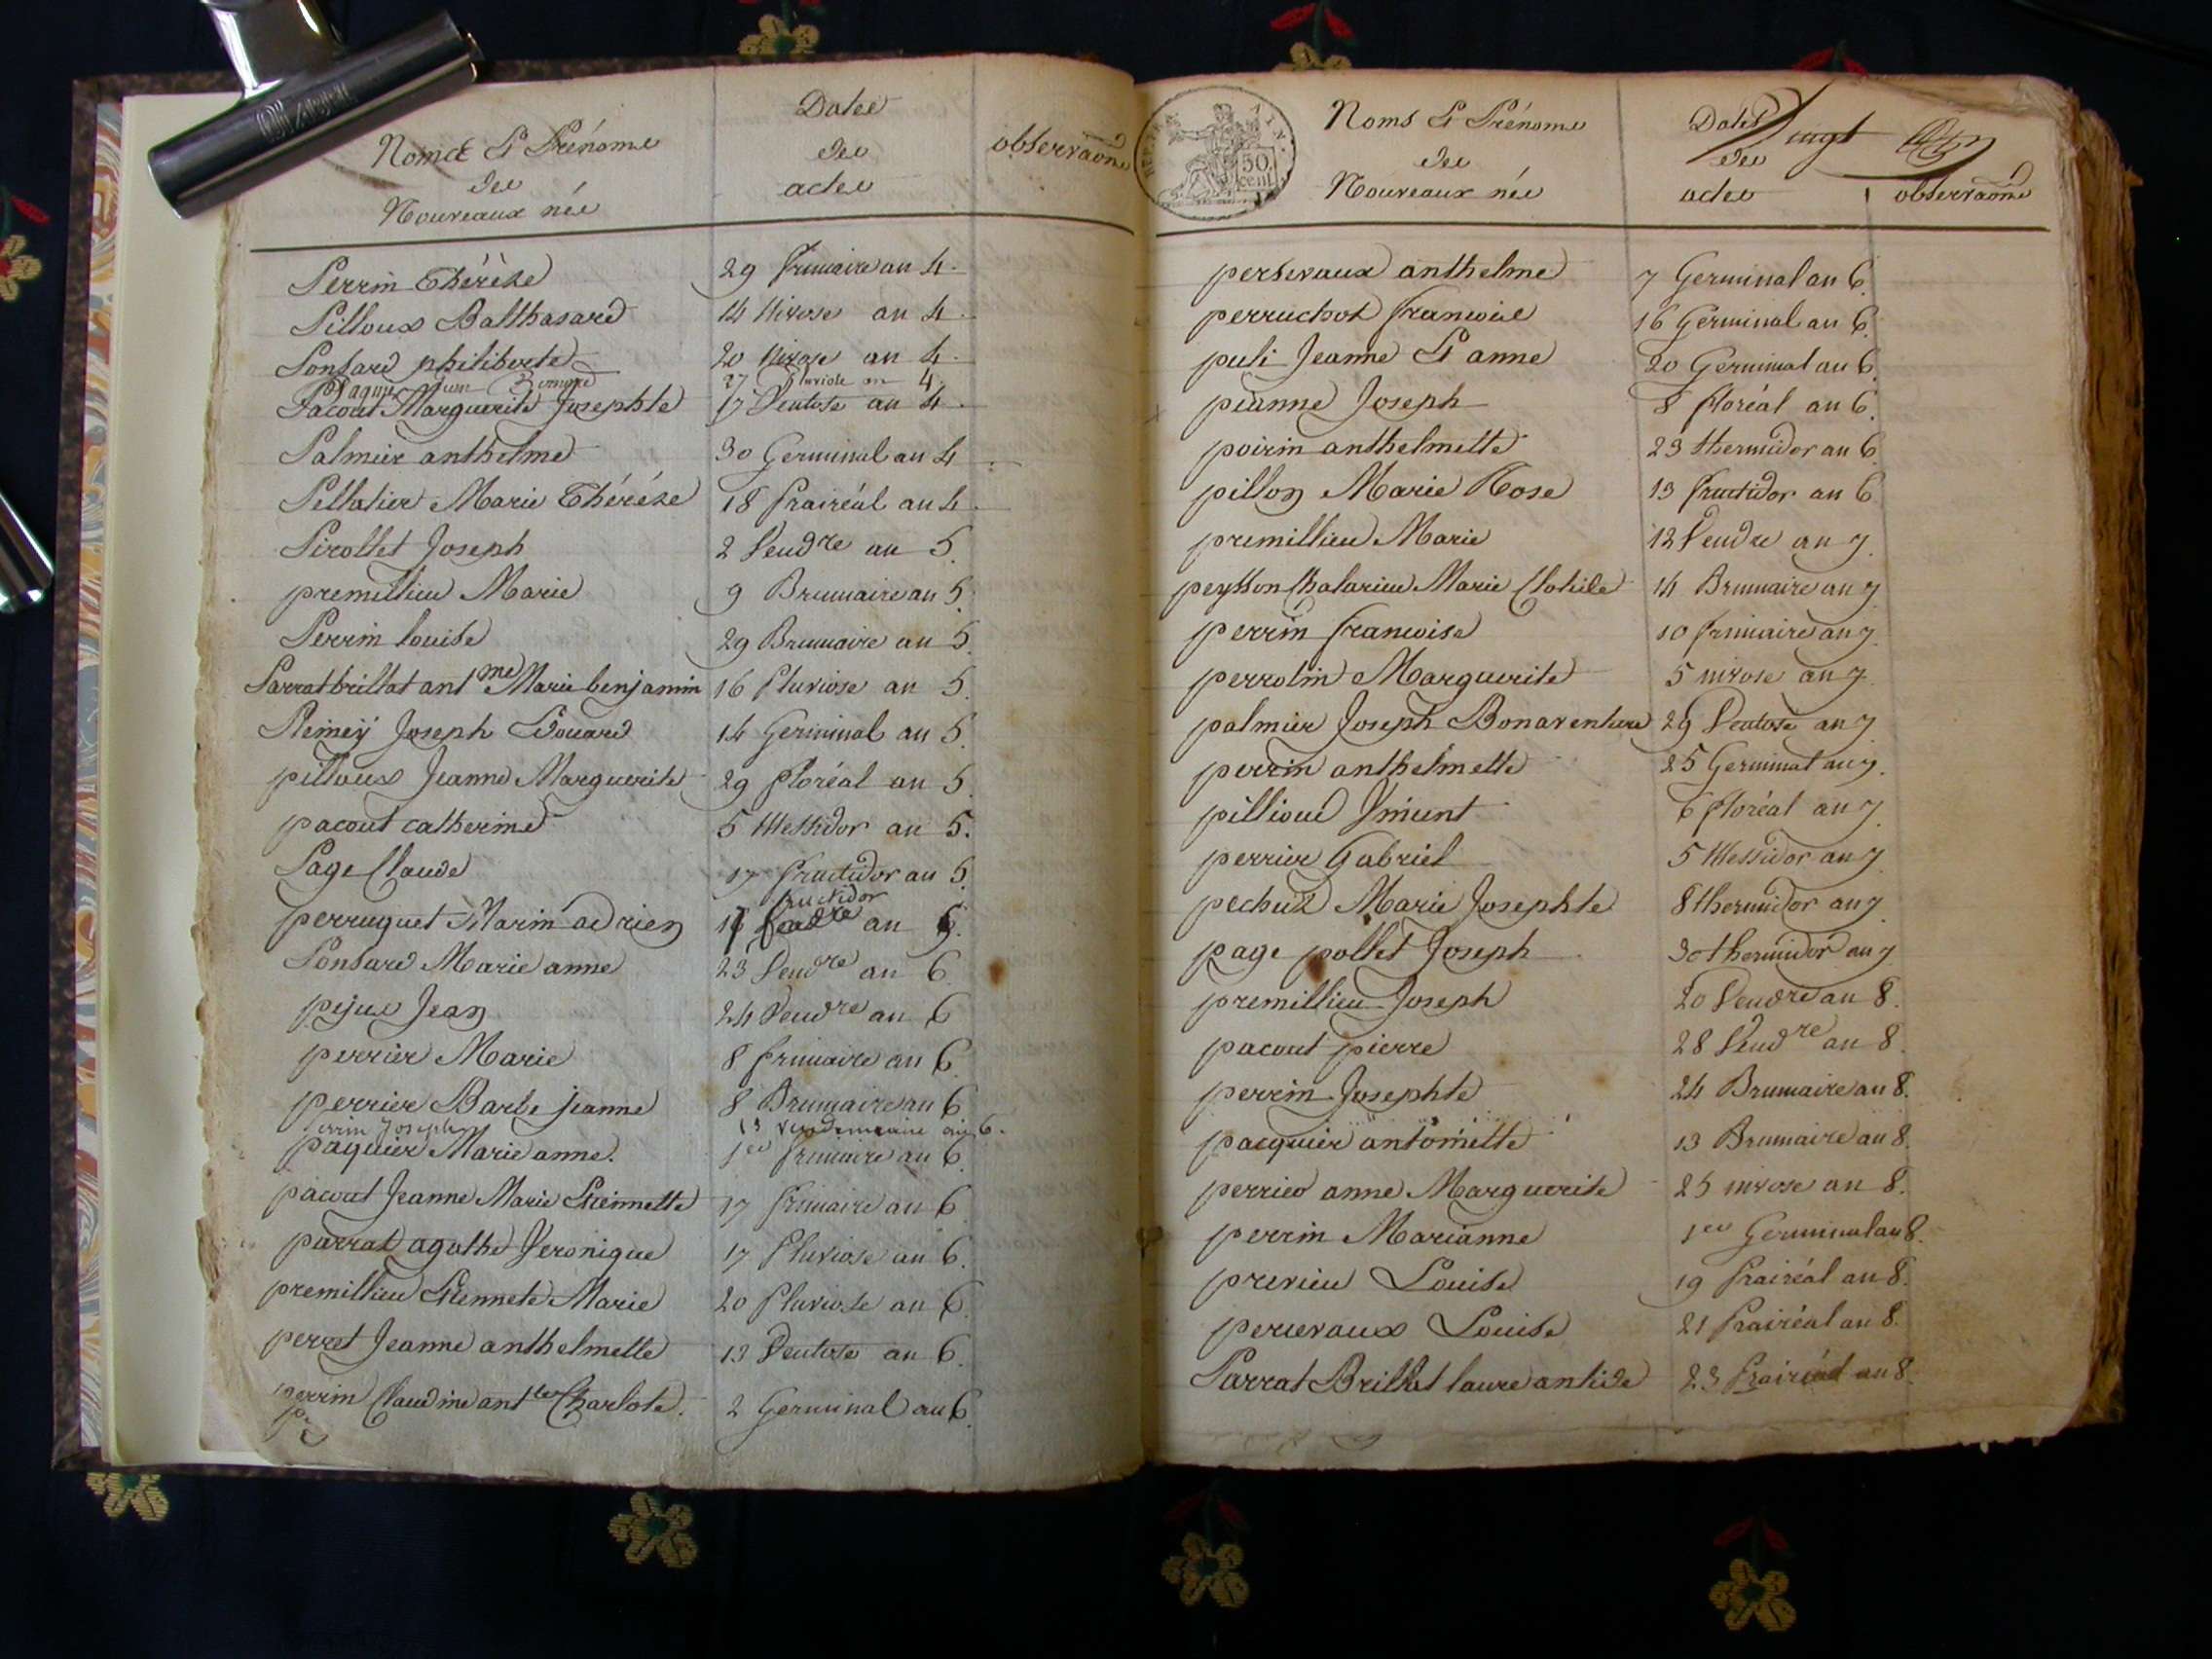 Noms Et Prénoms
des
Nouveaux nés
Dates
des
actes
observaõns
Perrin Thérèse 29 frimaire an 4.
Pilloux Balthasard 14 Nivose an 4.
Ponsard philiberte 20 Nivose an 4.
Jean 27 Pluviose an 4
Pacout Marguerite Josephte 17 Ventose an 4.
Palmier anthelme 30 Germinal an 4
Pellatier Marie Thérése 18 Prairéal an 4.
Pirollet Joseph 2 Vend.re an 5.
premillieu Marie 9 Brumaire an 5.
Perrin louise 29 Brumaire an 5.
Parrat brillat ant.me Marie benjamin 16 Pluviose an 5.
Joseph Edouard 14 Germinal an 5.
pilloux Jeanne Marguerite 29 floréal an 5.
pacout catherine 5 Messidor an 5.
Page Claude 17 fructidor an 5.
fructidor
perruquet Marin adrien an
Ponsard Marie anne 23 Vend.re an 6
pejus Jean 24 Vend.re an 6
perrier Marie 8 frimaire an 6.
perrier Barbe jeanne 8 Brumaire an 6
perrin Joseph 13 vendemiaire an 6.
paquier Marie anne. 1er frimaire an 6.
pacout Jeanne Marie Etiennette 17 frimaire an 6
parrat agathe Veronique 17 Pluviose an 6.
premillieu Etiennete Marie 20 Pluviose an 6.
perret Jeanne anthelmette 13 Ventose an 6.
perrin Claudine ant.te Charlote. 2 Germinal an 6.
50
cent
Noms Et Prénoms
des
Nouveaux nés
Dates
des
actes
vingt
observaõns
persevaux anthelme 7 Germinal an 6.
perruchot francois 16 Germinal an 6.
puli Jeanne Et anne 20 Germinal an 6.
pianne Joseph 8 floréal an 6.
poirin anthelmette 23 thermidor an 6.
pillon Marie Rose 13 fructidor an 6.
premillieu Marie 12 Vend.re an 7.
peysson Chalarieu Marie Clotide 14 Brumaire an 7
perrin francoise 10 frimaire an 7.
perrolin Marguerite 5 nivose an 7.
palmier Joseph Bonaventure 29 Ventose an 7.
perrin anthelmette 25 Germinal an 7.
pillioud Vincent 6 floréal an 7.
perrier Gabriel 5 Messidor an 7
pechux Marie Josephte 8 thermidor an 7.
page pollet Joseph 30 thermidor an 7
premillieu Joseph 20 Vend.re an 8.
pacout pierre 28 Vend.re an 8.
perrin Josephte 24 Brumaire an 8.
pacquier antoinette 13 Brumaire an 8.
perrier anne Marguerite 25 nivose an 8.
perrin Marianne 1er Germinal an 8.
previeu Louise 19 Prairéal an 8.
percevaux Louise 21 Prairéal an 8.
Parrat Brillat laure antide 23 Prairéal an 8.